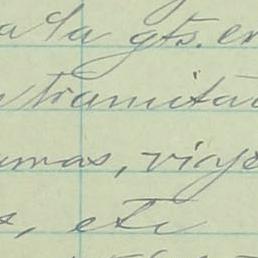 a la gts. en
tramitac
amas, viaje
s, etc